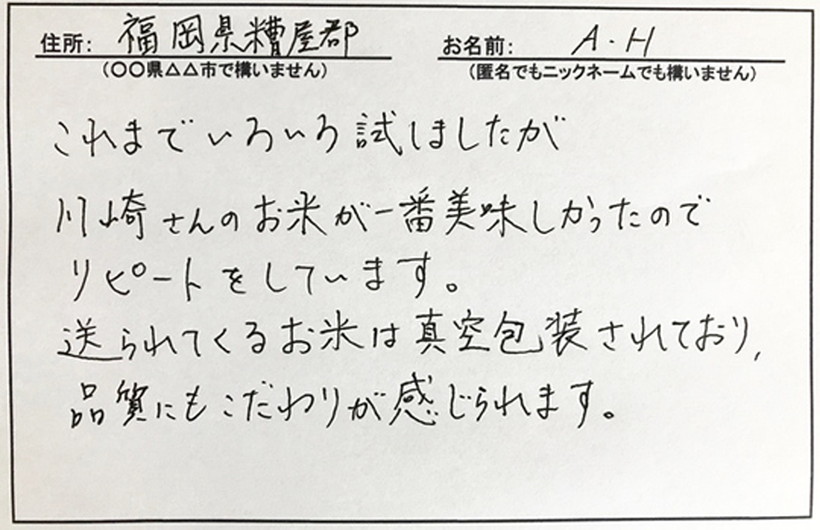 住所: 福岡県糟屋郡 お名前: A・H
(〇〇県△△市で構いません) (匿名でもニックネームでも構いません)
これまでいろいろ試しましたが
川崎さんのお米が一番美味しかったので
リピートをしています。
送られてくるお米は真空包装されており、
品質にもこだわりが感じられます。